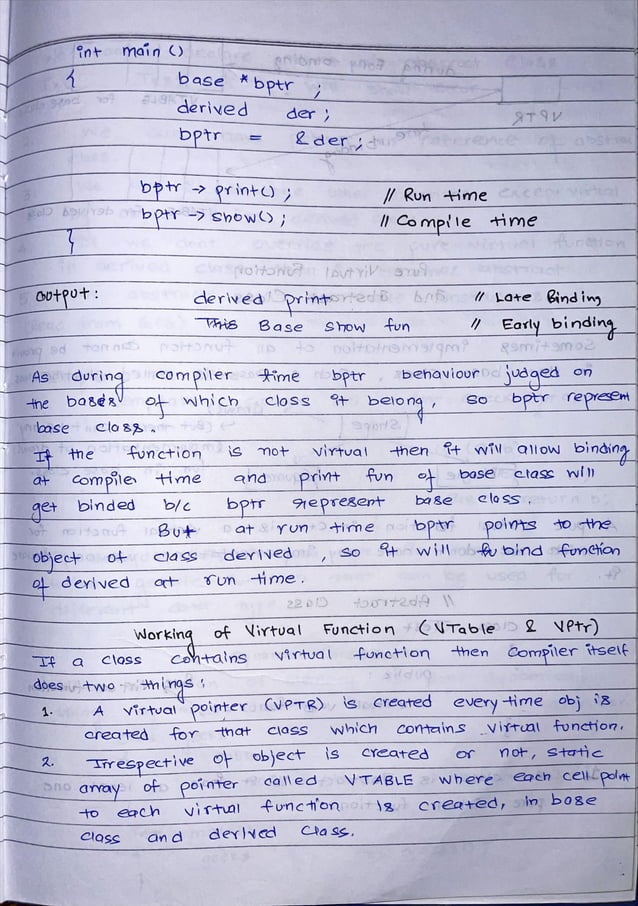 int main ()
{ base * bptr ;
derived der ;
bptr = &der ;
bptr -> print() ; // Run time
bptr -> show() ; // Compile time
}
output : derived print // Late Binding
This Base show fun // Early binding
As during compiler time bptr behaviour judged on
the bases of which class it belong, so bptr represent
base class.
If the function is not virtual then it will allow binding
at compiler time and print fun of base class will
get binded b/c bptr represent base class.
But at run time bptr points to the
object of class derived, so it will bind function
of derived at run time.
Working of Virtual Function (VTable & VPtr)
If a class contains virtual function then Compiler itself
does two things :
1. A virtual pointer (VPTR) is created every time obj is
created for that class which contains virtual function.
2. Irrespective of object is created or not, static
array of pointer called VTABLE where each cell point
to each virtual function is created, in base
class and derived class.